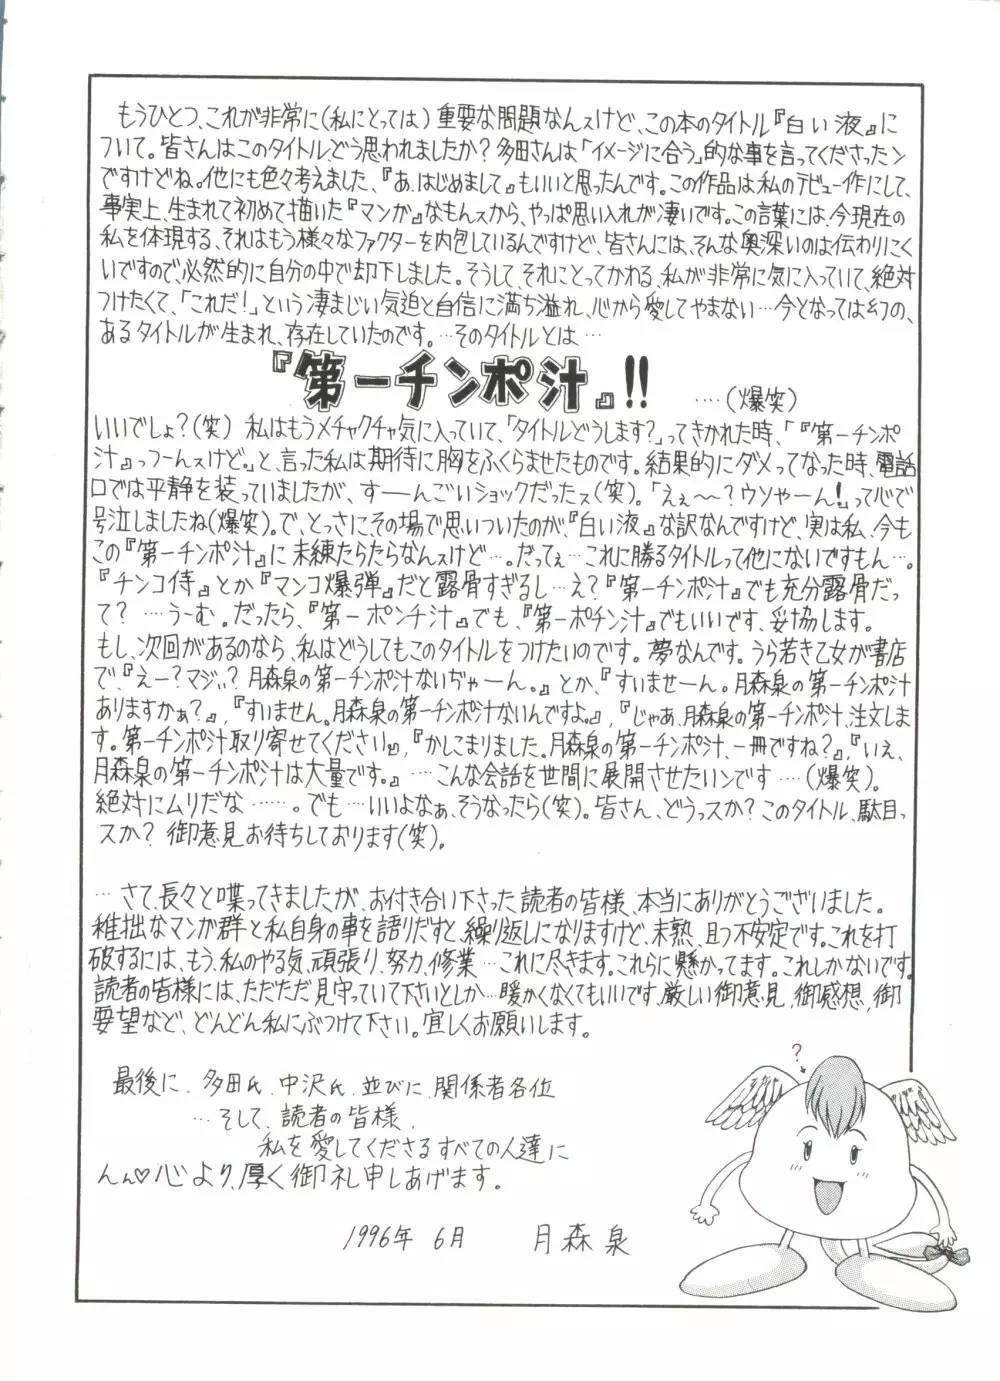 もうひとつ、これが非常に(私にとっては)重要な問題なんスけど、この本のタイトル『白い液』に
ついて。皆さんはこのタイトル、どう思われましたか?多田さんは「イメージに合う」的な事を言ってくださったン
ですけどね。他にも色々考えました、『あ、はじめまして』もいいと思ったんです。この作品は私のデビュー作にして、
事実上、生まれて初めて描いた『マンガ』なもんスから、やっぱ思い入れが凄いです。この言葉には、今現在の
私を体現する、それはもう様々なファクターを内包しているんですけど、皆さんには、そんな奥深いのは伝わりにく
いですので、必然的に自分の中で却下しました。そうして、それにとってかわる、私が非常に気に入っていて、絶対
つけたくて、「これだ!」という凄まじい気迫と自信に満ち溢れ、心から愛してやまない…今となっては幻の、
あるタイトルが生まれ、存在していたのです。…そのタイトルとは…
『第一チンポ汁』!! ‥‥(爆笑)
いいでしょ?(笑) 私はもうメチャクチャ気に入っていて、「タイトルどうします?」ってきかれた時、「『第一チンポ
汁』っつーんスけど。」と、言った私は期待に胸をふくらませたものです。結果的にダメってなった時、電話
口では平静を装っていましたが、すーーんごいショックだったス(笑)。「えぇ〜?ウソやーん!」って心で
号泣しましたね(爆笑)。で、とっさにその場で思いついたのが『白い液』な訳なんですけど、実は私、今も
この『第一チンポ汁』に未練たらたらなんスけど…。だってぇ…これに勝るタイトルって他にないですもん…。
『チンコ侍』とか『マンコ爆弾』だと露骨すぎるし…え?『第一チンポ汁』でも充分露骨だっ
て? ‥‥うーむ。だったら、『第一ポンチ汁』でも、『第一ポチン汁』でもいいです、妥協します。
もし、次回があるのなら、私はどうしてもこのタイトルをつけたいのです。夢なんです。うら若き乙女が書店
で、『えー?マジぃ?月森泉の第一チンポ汁ないぢゃーん。』とか、『すいませーん。月森泉の第一チンポ汁
ありますかぁ?』,『すいません。月森泉の第一チンポ汁ないんですよ。』,『じゃあ、月森泉の第一チンポ汁、注文しま
す。第一チンポ汁取り寄せてください』,『かしこまりました。月森泉の第一チンポ汁、一冊ですね?』,『いえ、
月森泉の第一チンポ汁は大量です。』…こんな会話を世間に展開させたいンです‥‥(爆笑)。
絶対にムリだな……。でも…いいよなぁ、そうなったら(笑)。皆さん、どうっスか?このタイトル、駄目っ
スか? 御意見お待ちしております(笑)。
…さて、長々と喋ってきましたが、お付き合い下さった読者の皆様、本当にありがとうございました。
稚拙なマンガ群と私自身の事を語りだすと、繰り返しになりますけど、未熟、且つ不安定です。これを打
破するには、もう、私のやる気、頑張り、努力、修業…これに尽きます。これらに懸かってます。これしかないです。
読者の皆様には、ただただ見守っていて下さいとしか…暖かくなくてもいいです、厳しい御意見、御感想、御
要望など、どんどん私にぶつけて下さい。宜しくお願いします。
最後に、多田氏、中沢氏、並びに、関係者各位
…そして、読者の皆様、
私を愛してくださるすべての人達に
んん♡心より、厚く御礼申しあげます。
1996年 6月 月森泉
?